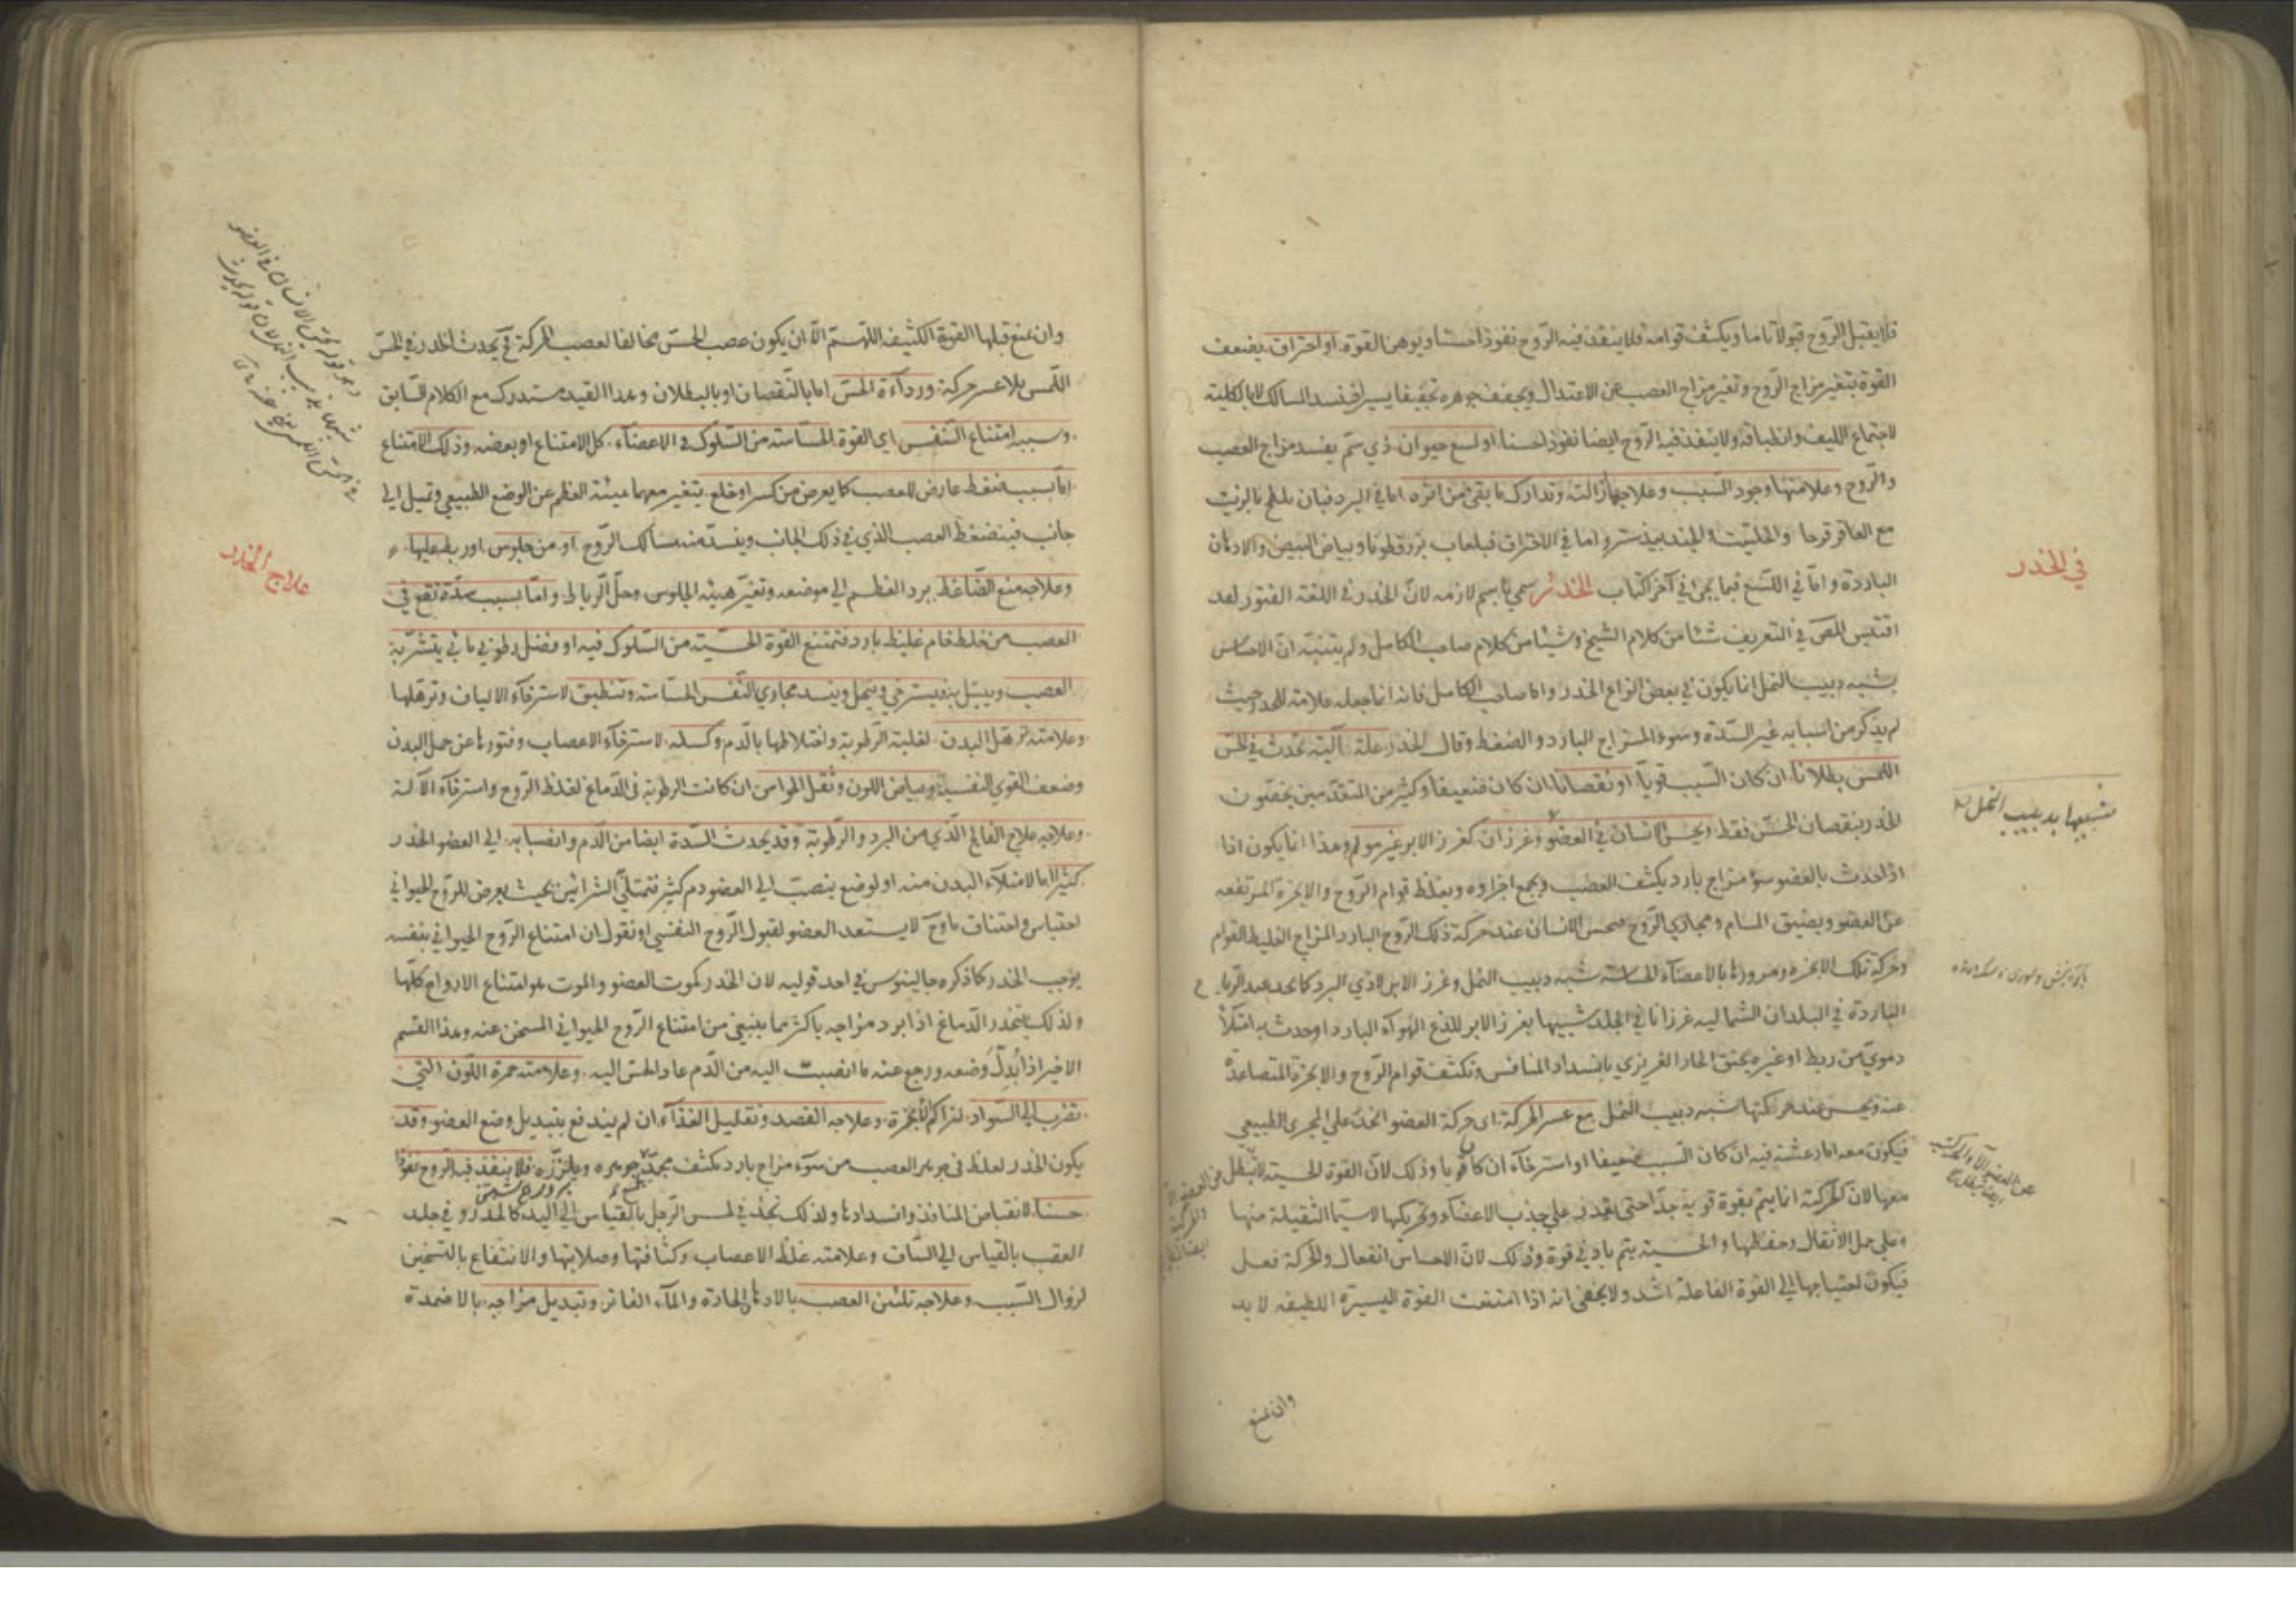 فلا يقبل الروح قبولا تاما ويكثف قوامه فلا ينفذ فيه الروح نفوذا حسنا ويوهن القوة او احتراق يضعف
القوة بتغير مزاج الروح وتغير مزاج العصب عن الاعتدال ويجفف جوهره تجفيفا يسيرا فينسد المسالك لا بالكلية
لاجتماع الليف وانطباقه ولا ينفذ فيه الروح ايضا نفوذا حسنا او لسع حيوان ذي سم يفسد مزاج العصب
والروح وعلامتها وجود السبب وعلاجها ازالته وتدارك ما بقي من اثره اما في البرد فبان بالزيت
مع العاقر قرحا والحلتيت والجندبيدستر واما في الاحتراق فبلعاب بزرقطونا وبياض البيض والادهان
الباردة واما في اللسع فبما يجئ في آخر الكتاب الخدر سمي باسم لازمه لان الخدر في اللغة الفتور لعد
اقتبس المص في التعريف شيئا من كلام الشيخ وشيئا من كلام صاحب الكامل ولم يتنبه ان الاحساس
بشبه دبيب النمل انما يكون في بعض انواع الخدر واما صاحب الكامل فانه انما جعله علامة للخدر حيث
لم يذكر من اسبابه غير السدة وسوء المزاج البارد والضغط وقال الخدر علة آلية تحدث في الحس
اللمس بطلانا ان كان السبب قويا او نقصانا ان كان ضعيفا وكثير من المتقدمين يخصون
الخدر بنقصان الحس فقط ويحس الانسان في العضو وغرزان كغرز الابر غير مولم وهذا انما يكون اذا
اذا حدث بالعضو سوء مزاج بارد يكثف العصب ويجمع اجزاوه ويغلظ قوام الروح والابخرة المرتفعه
عن العضو ويضيق المسام ومجاري الروح فيحس الانسان عند حركة ذلك الروح البارد المزاج الغليظ القوام
وحركة تلك الابخرة ومرورها بالاعضاء الحساسة شبه دبيب النمل وغرز الابر لاذي البرد كما يجد عند الرياح
الباردة في البلدان الشماليه غرزانا في الجلد شبيها بغرز الابر للذع الهواء البارد او حدث به امتلاء
دموي من ربط او غيره يحتقن الحار الغريزي بانسداد المنافس وتكثف قوام الروح والابخرة المتصاعدة
عنه ويحس عند حركتها شبه دبيب النمل مع عسر الحركة اي حركة العضو الخدر على المجرى الطبيعي
فيكون معه اما رعشة فيه ان كان السبب ضعيفا او استرخاء ان كان قويا وذلك لان القوة الحسية لا تبطل
معها لان الحركة انما يتم بقوة قوية جدا حتى يقدر على جذب الاعضاء وتحريكها لا سيما الثقيلة منها
وعلى حمل الاثقال وحفظها والحسية يتم بادني قوة وذلك لان الاحساس انفعال والحركة فعل
فيكون احتياجها الى القوة الفاعلة اشد ولا يخفى انه اذا امتنعت القوة اليسيرة اللطيفه لا بد
وان يمنع
في الخدر
شبيها بدبيب النمل
وان يمنع قبلها القوة الكثيفه اللهم الا ان يكون عصب الحس مخالفا لعصب الحركة فح يحدث الخدر في الحس
اللمس بلا عسر حركة ورداءة الحس اما بالنقصان او بالبطلان وهذا القيد مستدرك مع الكلام السابق
وسببه امتناع النفس اي القوة الحساسة من السلوك في الاعضاء كل الامتناع او بعضه وذلك الامتناع
اما بسبب ضغط عارض للعصب كما يعرض من كسر او خلع يتغير معهما هيئة العظم عن الوضع الطبيعي وتميل الى
جانب فينضغط العصب الذي في ذلك الجانب وينسد منه مسالك الروح او من جلوس او ربط عليها
وعلاجه منع الضاغط برد العظم الى موضعه وتغير هيئة الجلوس وحل الرباط واما بسبب سدة تقع في
العصب من خلط خام غليظ بارد فتمتنع القوة الحسية من السلوك فيه او فضل رطوبي مائي يتشربه
العصب ويبتل به فيسترخي ويتهل وينسد مجاري النفس الحساسة وتنطبق لاسترخاء الالياف وترهلها
وعلامته ترهل البدن لغلبة الرطوبة واختلاطها بالدم وكسله لاسترخاء الاعصاب وفتورها عن حمل البدن
وضعف القوى النفسية وبياض اللون وثقل الحواس ان كانت الرطوبة في الدماغ لغلظ الروح واسترخاء الآلة
وعلاجه علاج الفالج الذي من البرد والرطوبة وقد يحدث السدة ايضا من الدم وانصبابه الى العضو الخدر
كثيرا اما لامتلاء البدن منه او لوضع ينصب الى العضو دم كثير فتمتلئ الشرائين بحيث يعرض للروح الحيواني
احتباس واختناق ما وح لا يستعد العضو لقبول الروح النفسي او نقول ان امتناع الروح الحيواني بنفسه
يوجب الخدر كما ذكره جالينوس في احد قوليه لان الخدر كموت العضو والموت هو امتناع الارواح كلها
ولذلك يتخدر الدماغ اذا برد مزاجه باكثر مما ينبغي من امتناع الروح الحيواني المسخن عنه وهذا القسم
الاخير اذا بدل وضعه ورجع عنه ما انصبت اليه من الدم عاد الحس اليه وعلامته حمرة اللون التي
تضرب الى السواد لتراكم الابخرة وعلاجه الفصد وتقليل الغذاء ان لم يندفع بتبديل وضع العضو وقد
يكون الخدر لغلظ في جوهر العصب من سوء مزاج بارد يكثف جوهره ويلززه فلا ينفذ فيه الروح نفوذا
حسنا لانقباض المنافذ وانسدادها ولذلك تجد في لمس الرجل بالقياس الى اليد كالخدر وفي جلد
العقب بالقياس الى الساق وعلامته غلظ الاعصاب وكثافتها وصلابتها والانتفاع بالتسخين
لزوال السبب وعلاجه تليين العصب بالادهان الحادة والماء الفاتر وتبديل مزاجه بالاضمدة
علاج الخدر